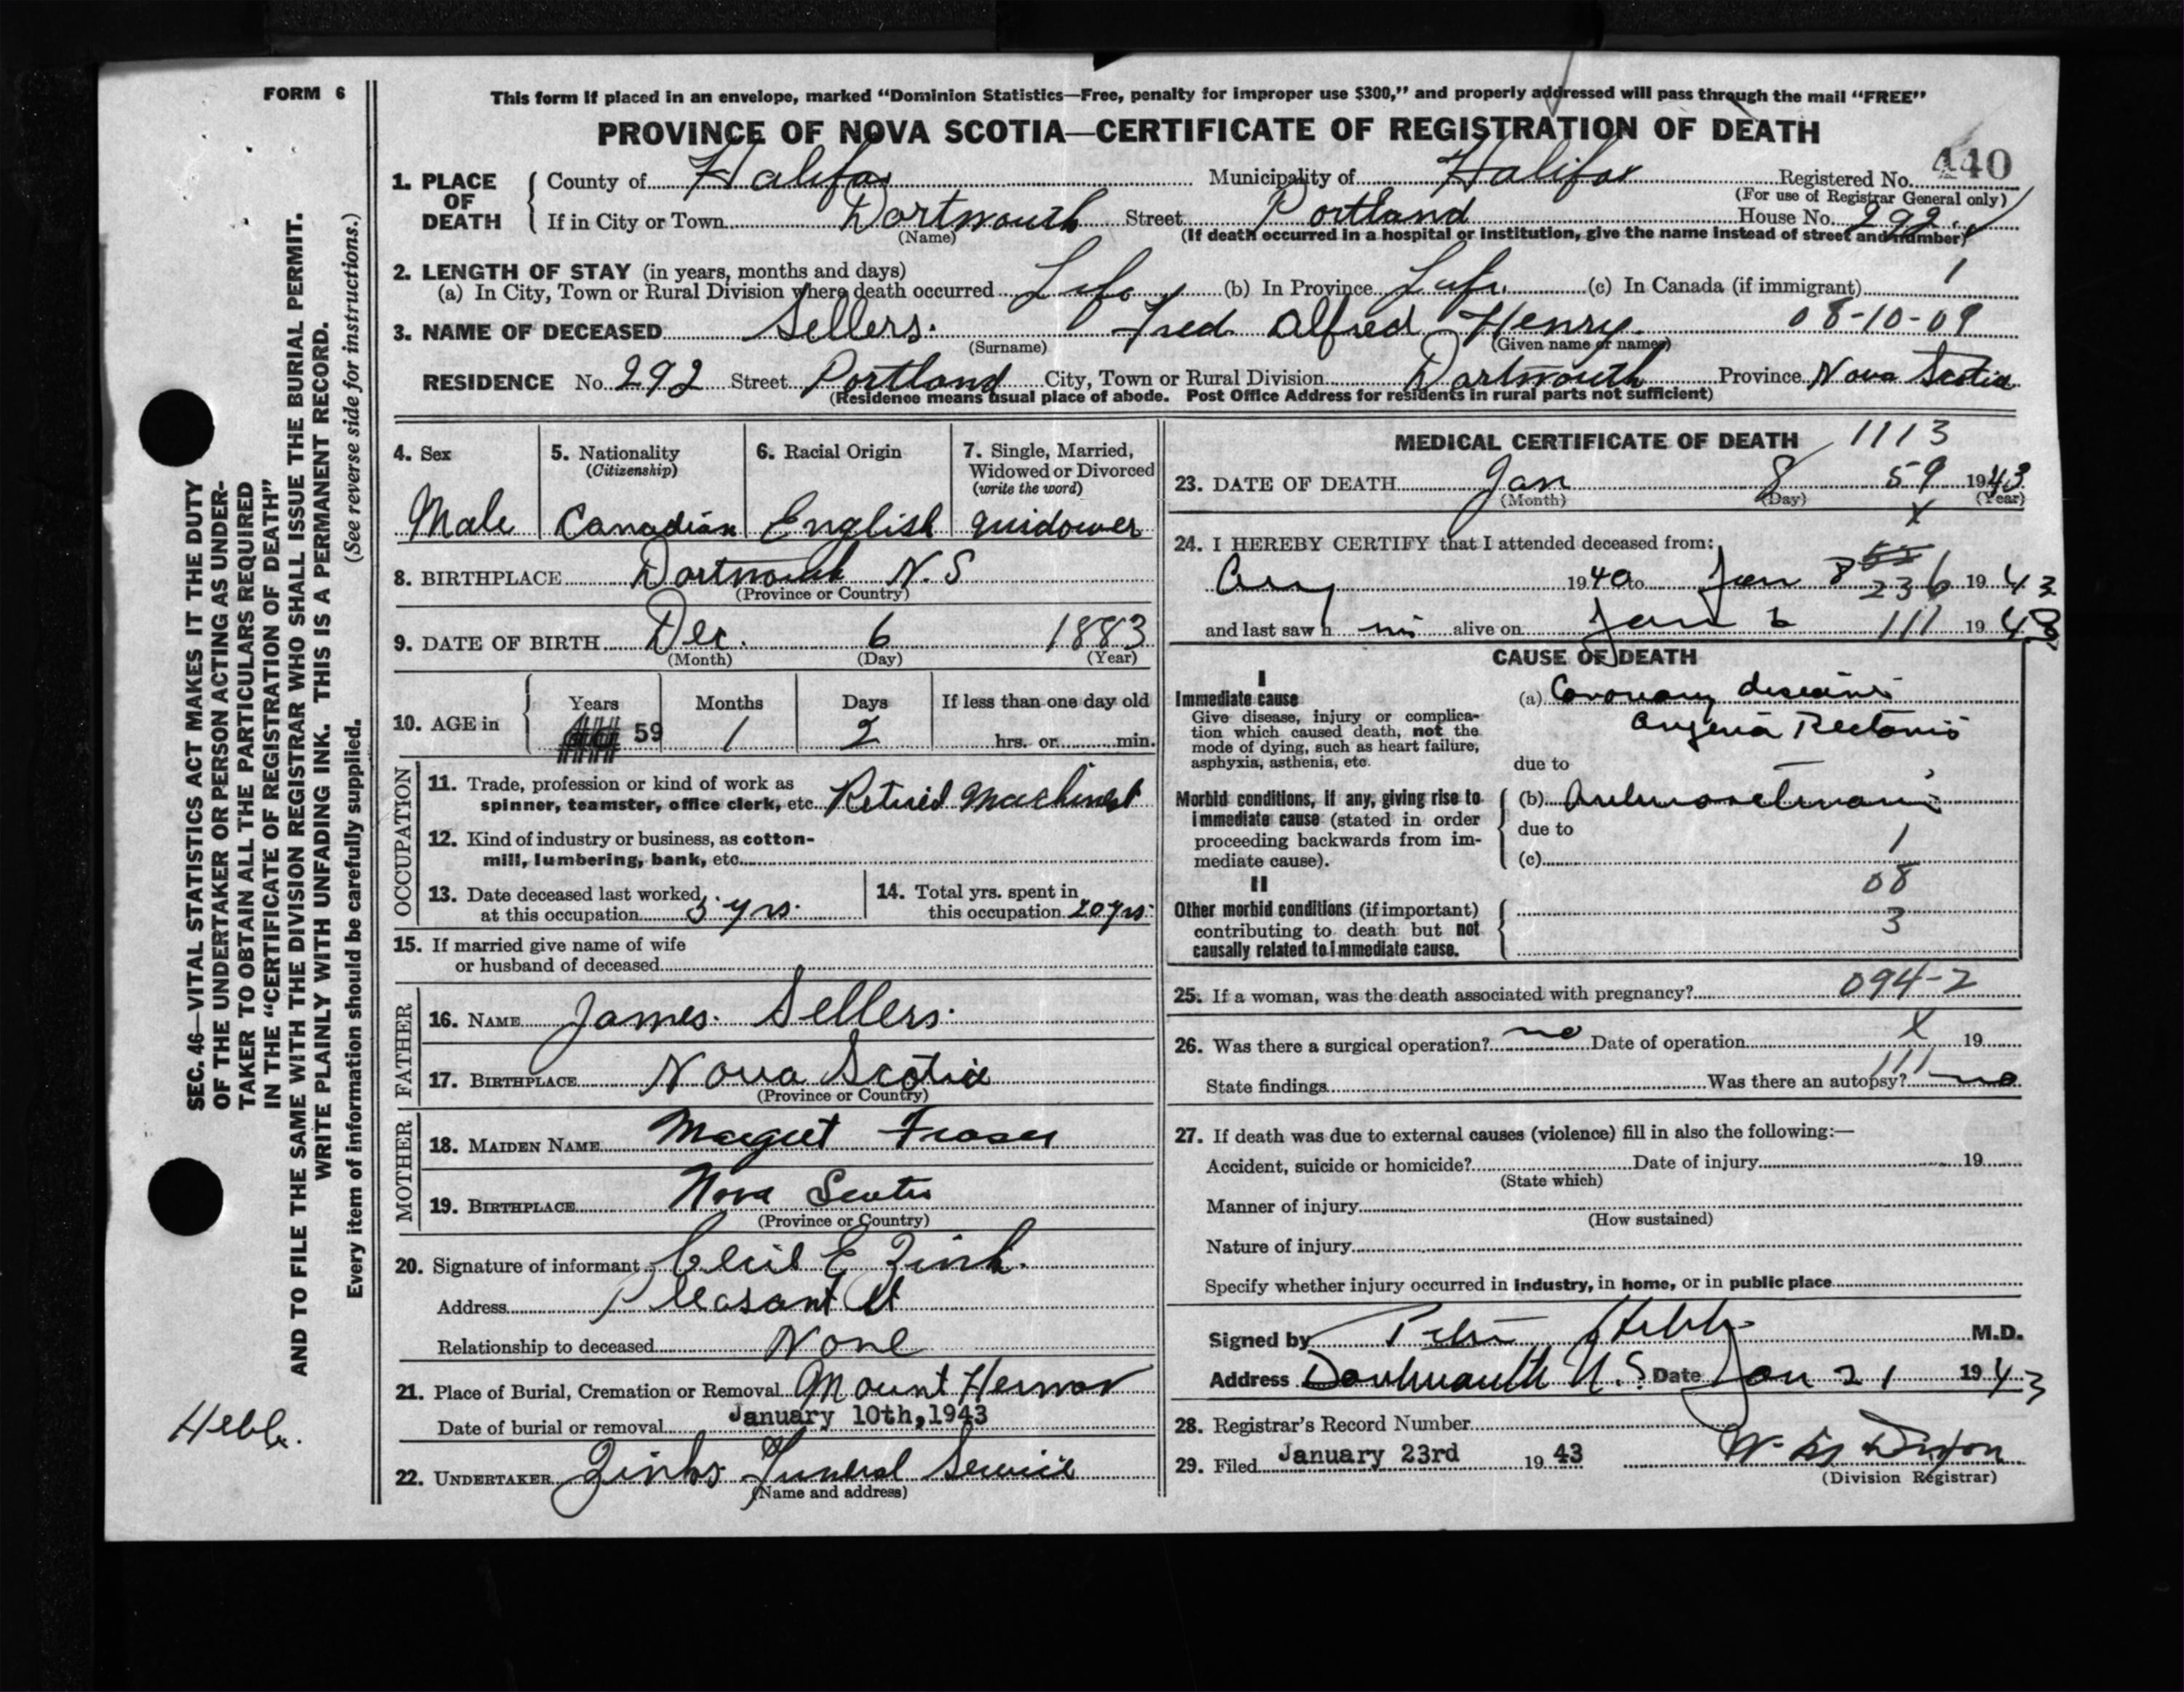 FORM 6
This form if placed in an envelope, marked "Dominion Statistics—Free, penalty for improper use $300," and properly addressed will pass through the mail "FREE"
PROVINCE OF NOVA SCOTIA—CERTIFICATE OF REGISTRATION OF DEATH
440
1. PLACE OF DEATH County of Halifax Municipality of Halifax Registered No.
(For use of Registrar General only)
If in City or Town Dartmouth Street Portland House No. 292
(Name) (If death occurred in a hospital or institution, give the name instead of street and number)
2. LENGTH OF STAY (in years, months and days)
(a) In City, Town or Rural Division where death occurred Life (b) In Province Life (c) In Canada (if immigrant) 1
3. NAME OF DECEASED Sellers. Fred Alfred Henry. 08-10-09
(Surname) (Given name or names)
RESIDENCE No. 292 Street Portland City, Town or Rural Division Dartmouth Province Nova Scotia
(Residence means usual place of abode. Post Office Address for residents in rural parts not sufficient)
4. Sex 5. Nationality (Citizenship) 6. Racial Origin 7. Single, Married, Widowed or Divorced (write the word)
Male Canadian English Widower
8. BIRTHPLACE Dartmouth N.S
(Province or Country)
9. DATE OF BIRTH Dec. 6 1883
(Month) (Day) (Year)
10. AGE in Years Months Days If less than one day old
59 1 2 hrs. or min.
OCCUPATION
11. Trade, profession or kind of work as
spinner, teamster, office clerk, etc. Retired Machinist
12. Kind of industry or business, as cotton-
mill, lumbering, bank, etc.
13. Date deceased last worked
at this occupation 5 yrs.
14. Total yrs. spent in
this occupation 20 yrs.
15. If married give name of wife
or husband of deceased
FATHER
16. NAME James Sellers.
17. BIRTHPLACE Nova Scotia
(Province or Country)
MOTHER
18. MAIDEN NAME Margret Fraser
19. BIRTHPLACE Nova Scotia
(Province or Country)
20. Signature of informant Cecil E Zink.
Address Pleasant St
Relationship to deceased None
21. Place of Burial, Cremation or Removal Mount Hermon
Date of burial or removal January 10th, 1943
22. UNDERTAKER Zinks Funeral Service
(Name and address)
MEDICAL CERTIFICATE OF DEATH 1113
23. DATE OF DEATH Jan 8 59 1943
(Month) (Day) (Year)
X
24. I HEREBY CERTIFY that I attended deceased from:
1940 to Jan 8 236 1943
and last saw h im alive on Jan 6 111 1943
CAUSE OF DEATH
I
Immediate cause
Give disease, injury or complica-
tion which caused death, not the
mode of dying, such as heart failure,
asphyxia, asthenia, etc.
(a) Coronary disease
Angina Pectoris
due to
Morbid conditions, if any, giving rise to
immediate cause (stated in order
proceeding backwards from im-
mediate cause).
(b)
due to
1
(c)
08
II
Other morbid conditions (if important)
contributing to death but not
causally related to immediate cause.
3
25. If a woman, was the death associated with pregnancy? 094-2
26. Was there a surgical operation? no Date of operation X 19
State findings Was there an autopsy? 111 no
27. If death was due to external causes (violence) fill in also the following:—
Accident, suicide or homicide? Date of injury 19
(State which)
Manner of injury
(How sustained)
Nature of injury
Specify whether injury occurred in industry, in home, or in public place
Signed by Hebb M.D.
Address Dartmouth N.S. Date Jan 21 1943
28. Registrar's Record Number
29. Filed January 23rd 1943 Dixon
(Division Registrar)
SEC. 46—VITAL STATISTICS ACT MAKES IT THE DUTY
OF THE UNDERTAKER OR PERSON ACTING AS UNDER-
TAKER TO OBTAIN ALL THE PARTICULARS REQUIRED
IN THE "CERTIFICATE OF REGISTRATION OF DEATH"
AND TO FILE THE SAME WITH THE DIVISION REGISTRAR WHO SHALL ISSUE THE BURIAL PERMIT.
WRITE PLAINLY WITH UNFADING INK. THIS IS A PERMANENT RECORD.
(See reverse side for instructions.)
Every item of information should be carefully supplied.
Hebb.